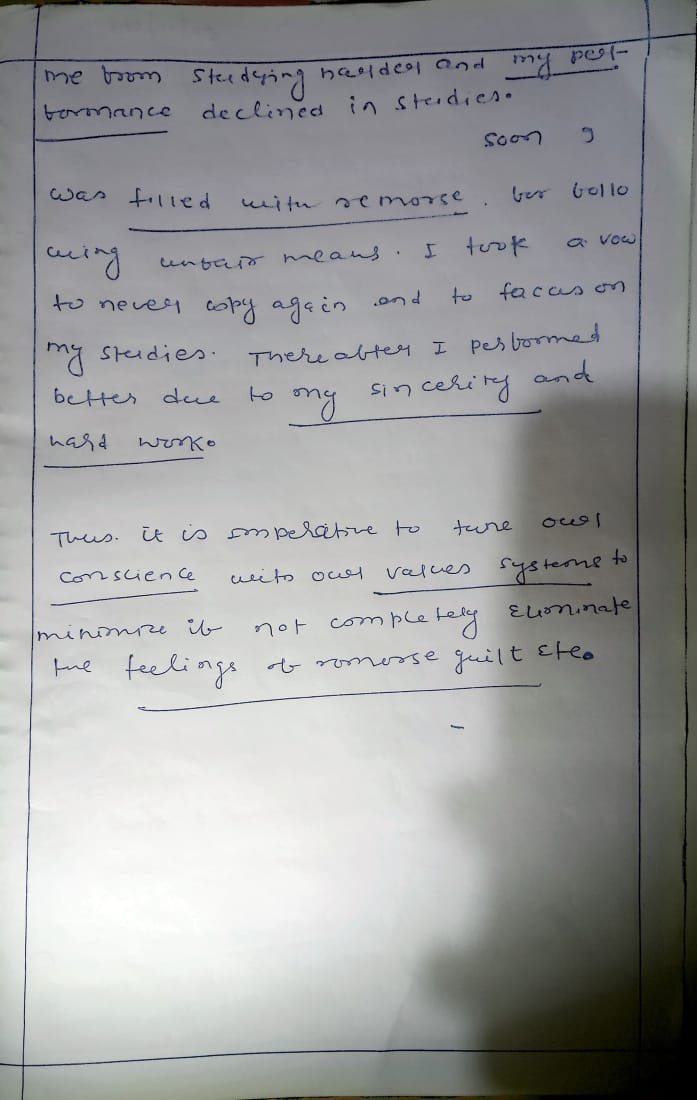 me from studying harder and my per-
formance declined in studies.
soon I
was filled with remorse. for follo
wing unfair means. I took a vow
to never copy again and to focus on
my studies. Thereafter I performed
better due to my sincerity and
hard work.
Thus. it is imperative to tune our
conscience with our values systems to
minimize if not completely eliminate
the feelings of remorse guilt etc.